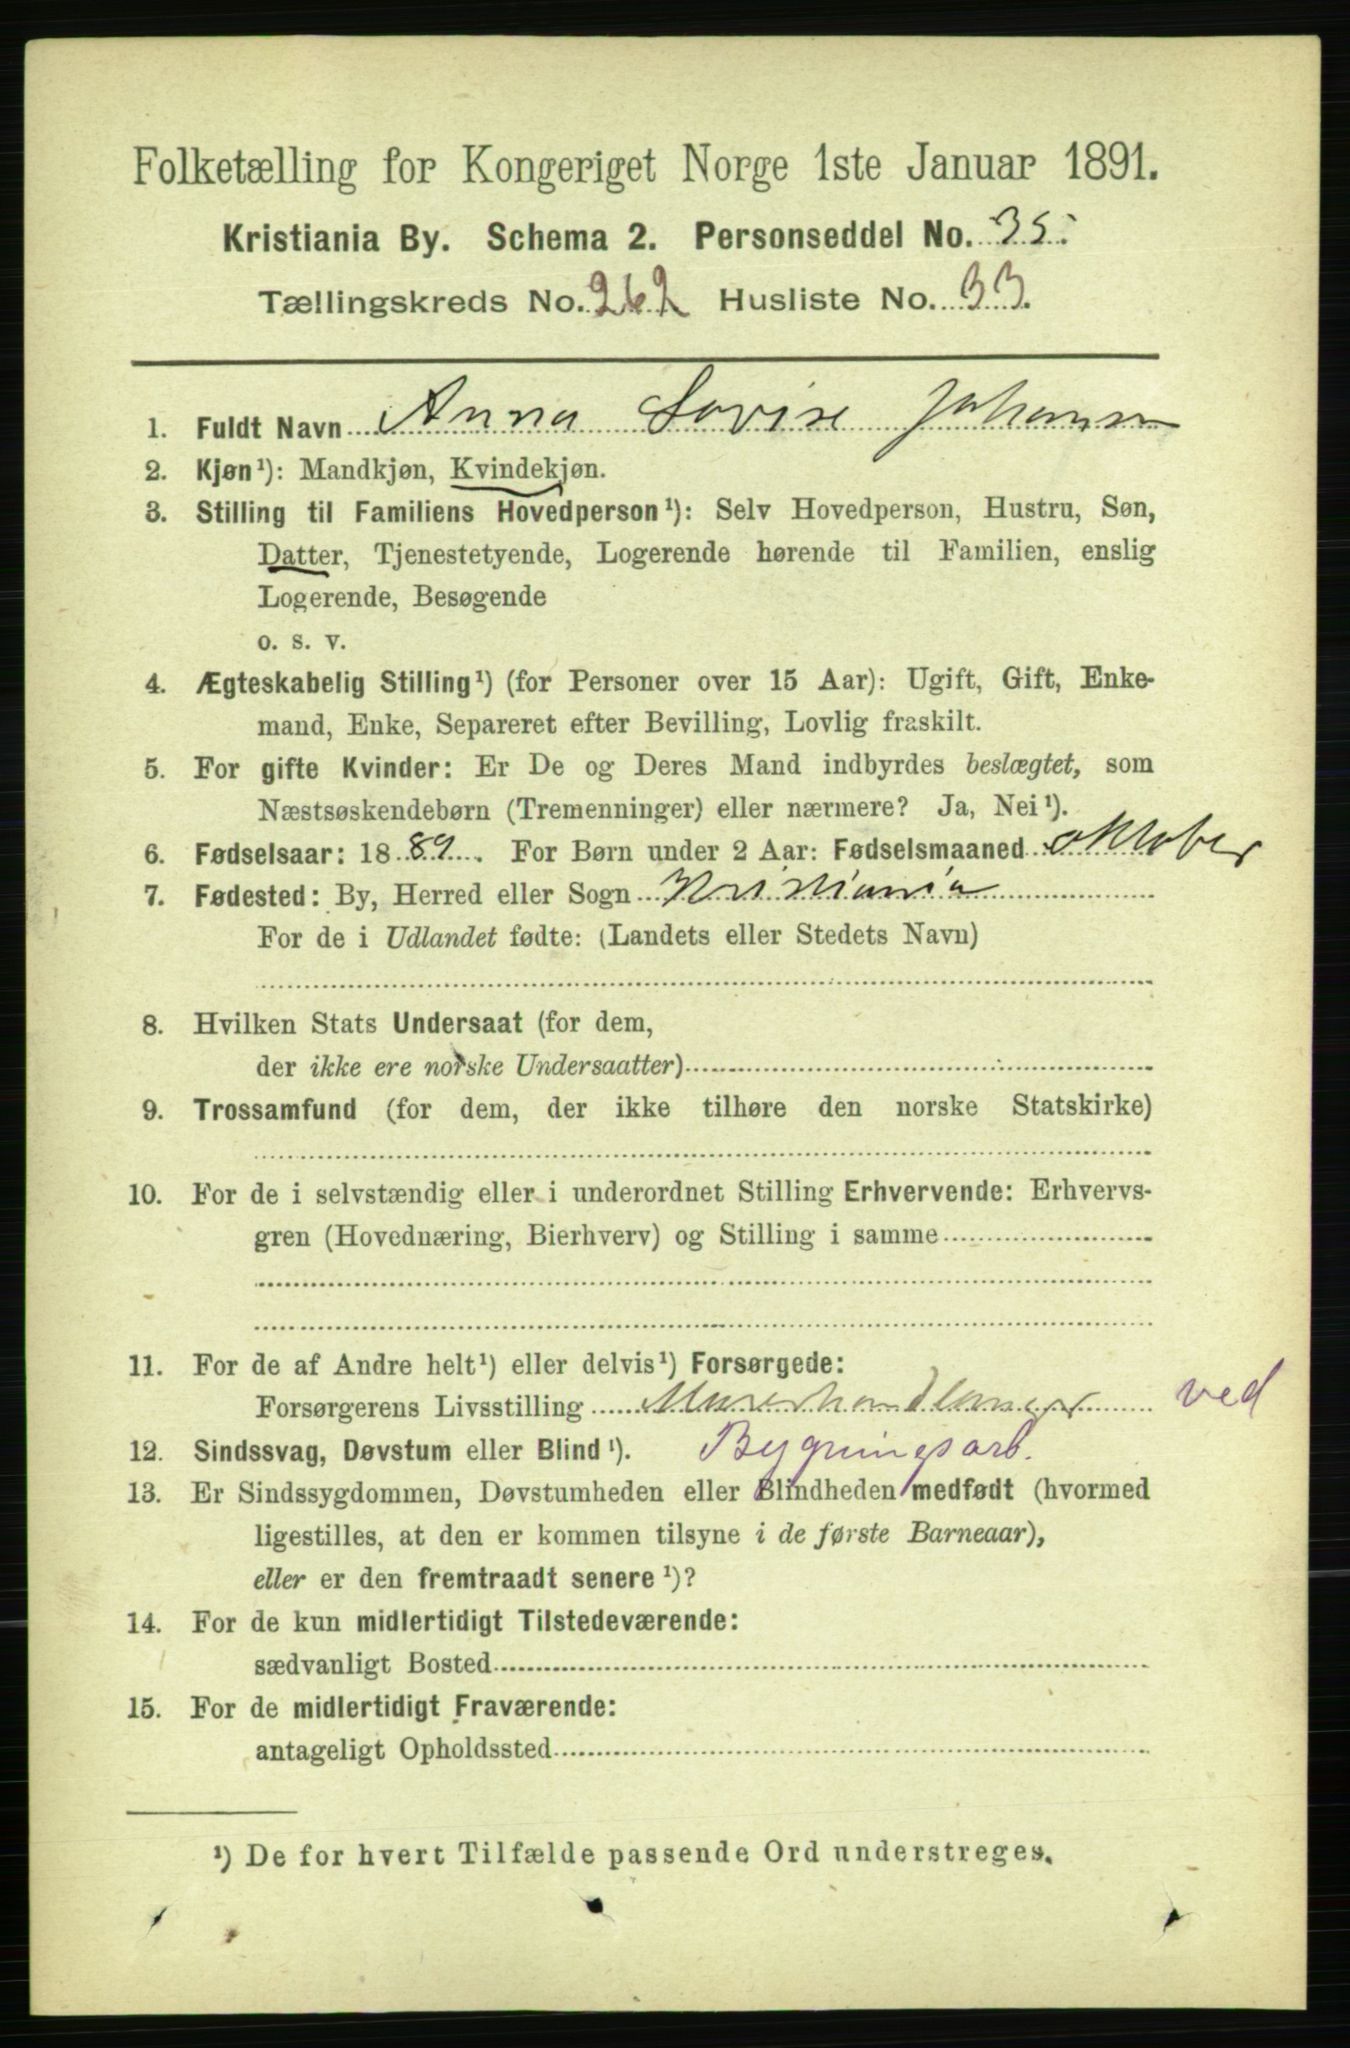 Folketælling for Kongeriget Norge 1ste Januar 1891.
Kristiania By. Schema 2. Personseddel No. 35.
Tællingskreds No. 262 Husliste No. 33.
1. Fuldt Navn Anna Lovise Johansen
2. Kjøn¹): Mandkjøn, Kvindekjøn.
3. Stilling til Familiens Hovedperson¹): Selv Hovedperson, Hustru, Søn,
Datter, Tjenestetyende, Logerende hørende til Familien, enslig
Logerende, Besøgende
o. s. v.
4. Ægteskabelig Stilling¹) (for Personer over 15 Aar): Ugift, Gift, Enke-
mand, Enke, Separeret efter Bevilling, Lovlig fraskilt.
5. For gifte Kvinder: Er De og Deres Mand indbyrdes beslægtet, som
Næstsøskendebørn (Tremenninger) eller nærmere? Ja, Nei¹).
6. Fødselsaar: 1889. For Børn under 2 Aar: Fødselsmaaned oktober
7. Fødested: By, Herred eller Sogn Kristiania
For de i Udlandet fødte: (Landets eller Stedets Navn)
8. Hvilken Stats Undersaat (for dem,
der ikke ere norske Undersaatter)
9. Trossamfund (for dem, der ikke tilhøre den norske Statskirke)
10. For de i selvstændig eller i underordnet Stilling Erhvervende: Erhvervs-
gren (Hovednæring, Bierhverv) og Stilling i samme
11. For de af Andre helt¹) eller delvis¹) Forsørgede:
Forsørgerens Livsstilling Murerhandlanger ved
12. Sindssvag, Døvstum eller Blind¹). Bygningsarb.
13. Er Sindssygdommen, Døvstumheden eller Blindheden medfødt (hvormed
ligestilles, at den er kommen tilsyne i de første Barneaar),
eller er den fremtraadt senere¹)?
14. For de kun midlertidigt Tilstedeværende:
sædvanligt Bosted
15. For de midlertidigt Fraværende:
antageligt Opholdssted
¹) De for hvert Tilfælde passende Ord understreges.